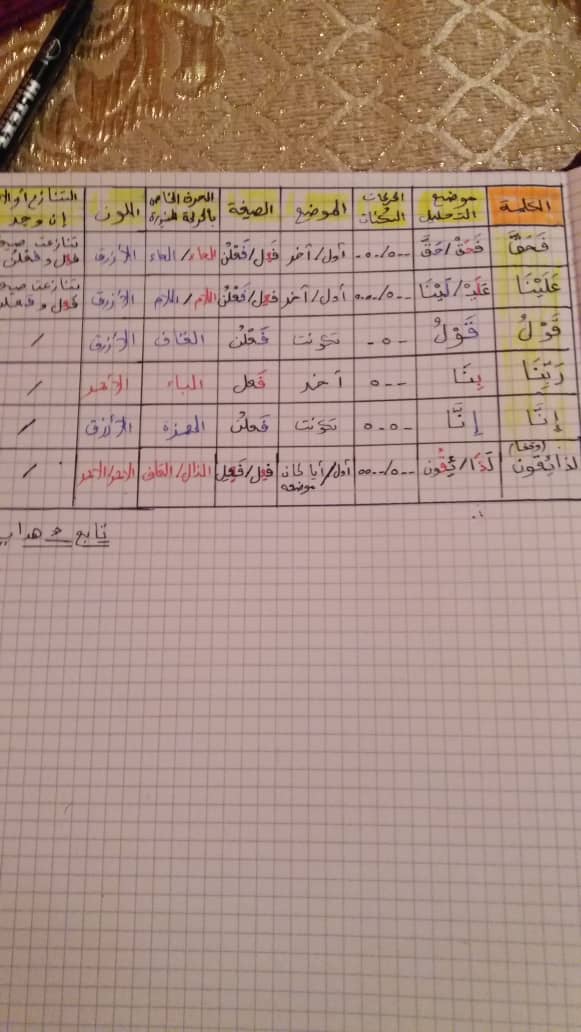 HI-TEXT
الكلمة موضع التحليل الحركات السكنات الموضع الصيغة الحرف الخاص بالحركة المميزة اللون التنازع أو الا إن وجد
فَحَقَّ فَحَقْ/حَقَّ --٥/-٥٠ أول/آخر فَعِل/فَعْلُنْ الحاء/الحاء الأزرق تنازعت صيغ فعل و فعلن
عَلَيْنَا عَلَيْ/لَيْنَا --٥/-٥-٥ أول/آخر فعل/فَعْلُنْ اللام/اللام الأزرق تنازعت صيغ فعل و فعلن
قَوْلُ قَوْلُ -٥- تكونت فَعْلُنْ القاف الأزرق /
رَبِّنَا بِنَا --٥ آخر فَعِل الباء الأحمر /
إِنَّا إِنَّا -٥-٥ تكونت فَعْلُنْ الهمزة الأزرق /
لَذَائِقُونَ (وقفا) لَذَا/ئِقُون --٥/--٥٥ أول/أيا كان موضعه فعل/فَعِل الذال/القاف الأحمر/الأحمر /
تابع